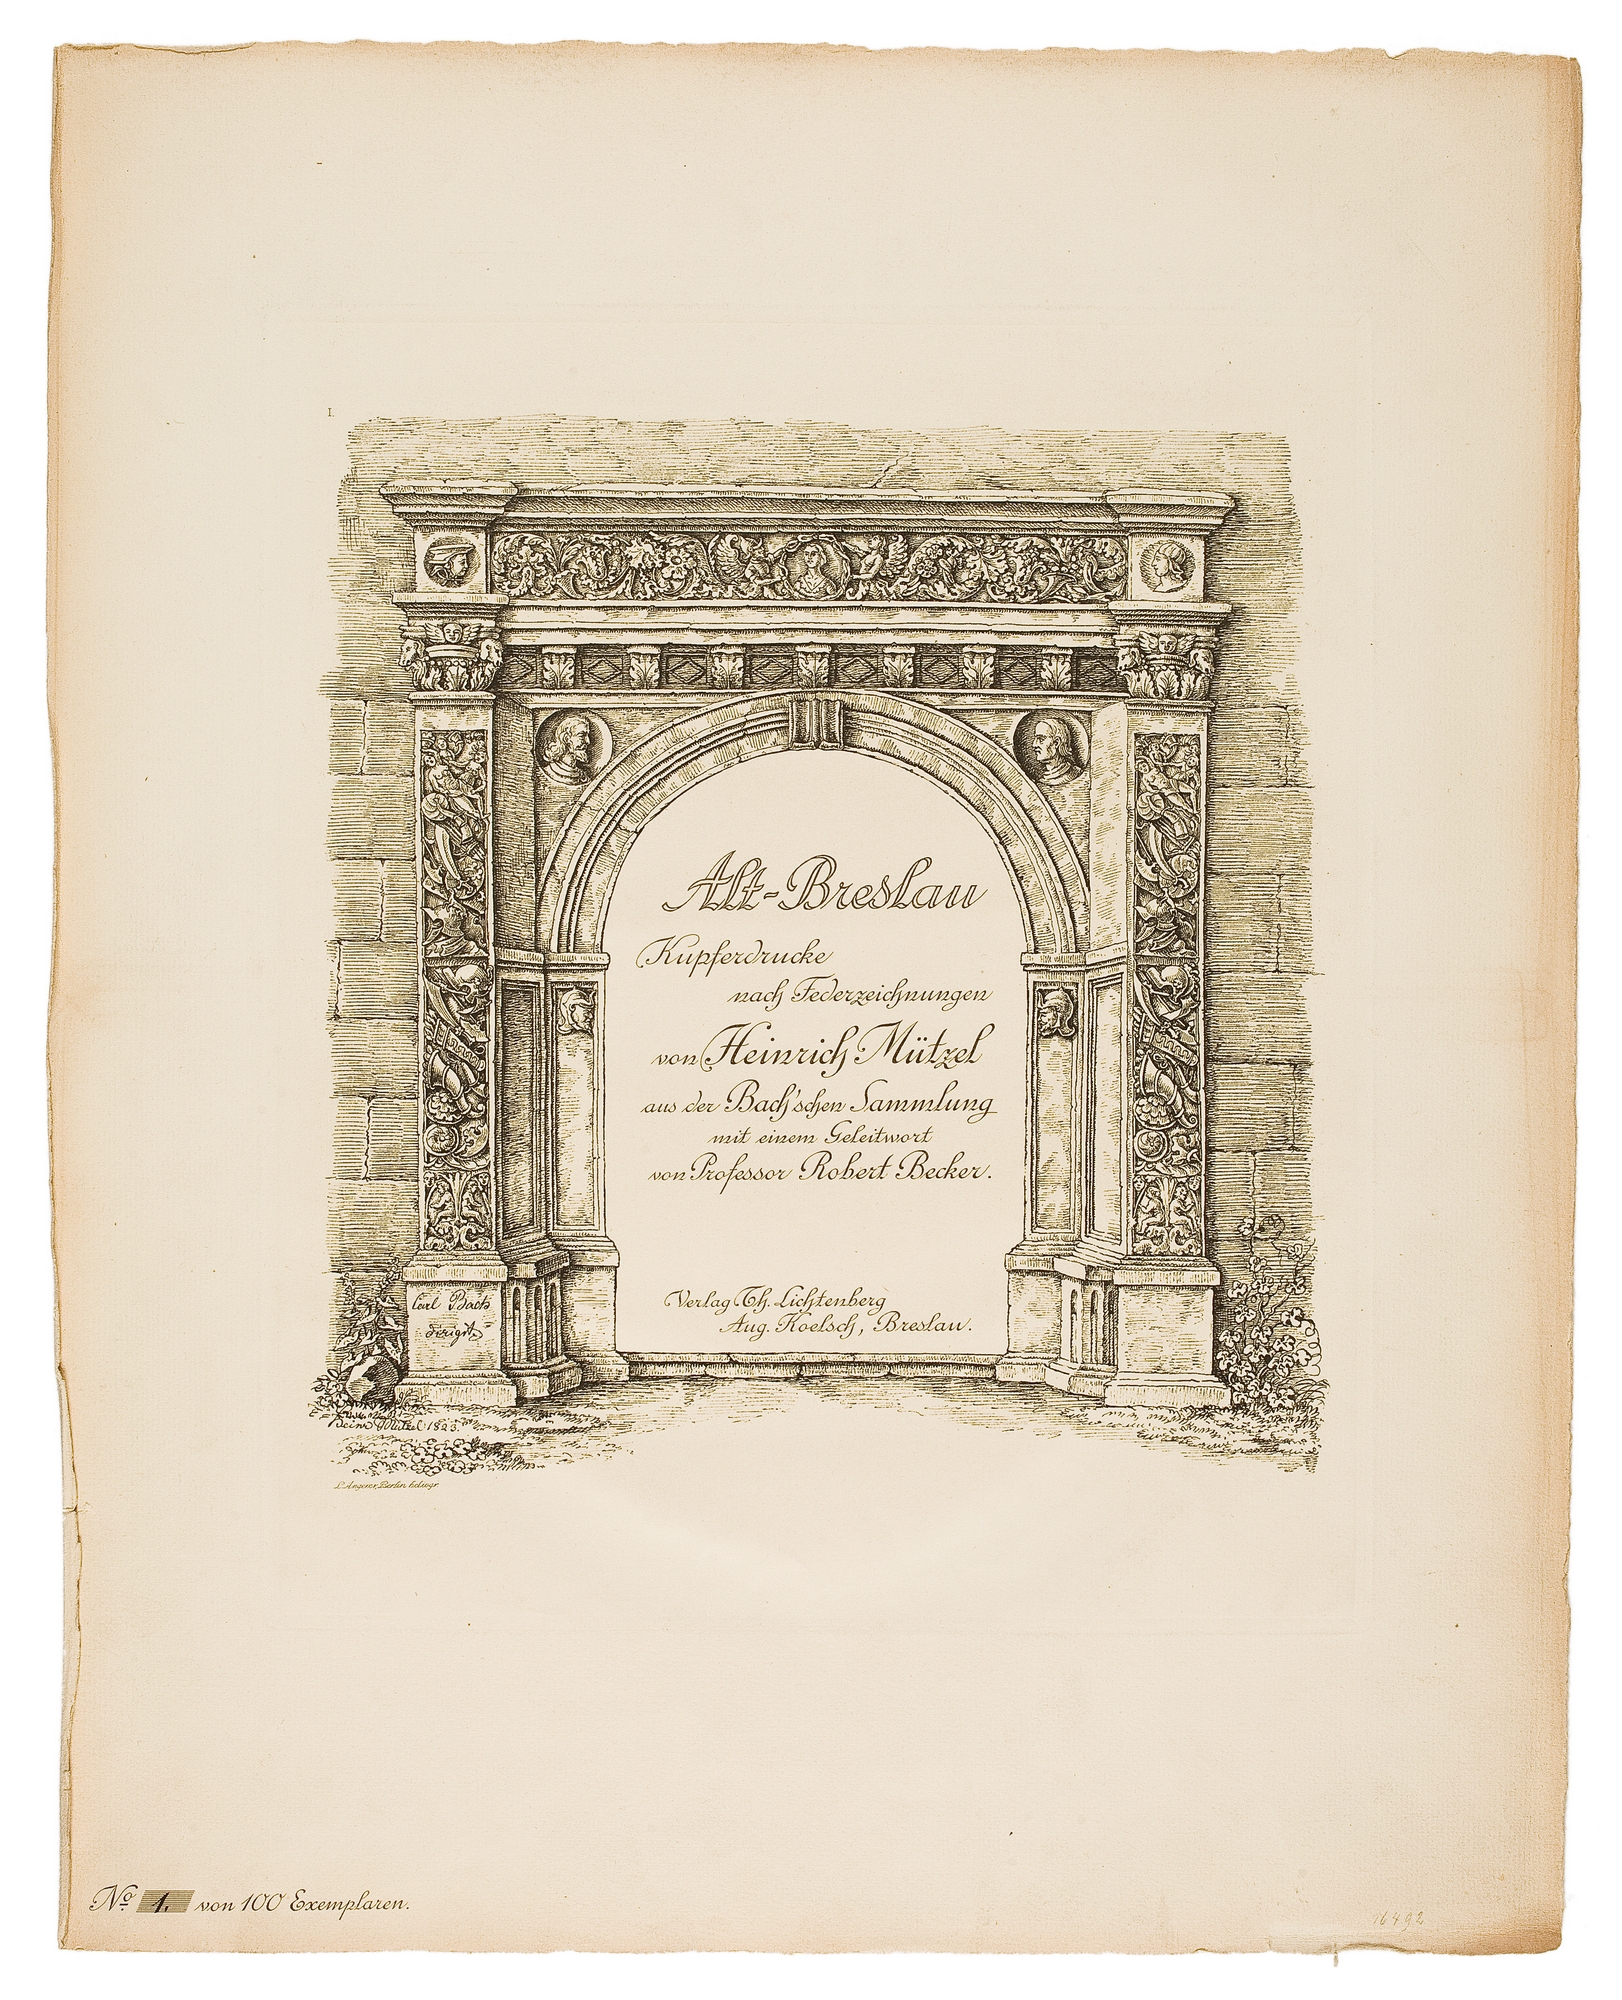 I.
Alt-Breslau
Kupferdrucke
nach Federzeichnungen
von Heinrich Mützel
aus der Bach'schen Sammlung
mit einem Geleitwort
von Professor Robert Becker.
Verlag Th. Lichtenberg
Aug. Koelsch, Breslau.
Carl Bach
dirigit
Heinr. Mützel 1823.
L. Angerer, Berlin heliogr.
No 1. von 100 Exemplaren.
16492